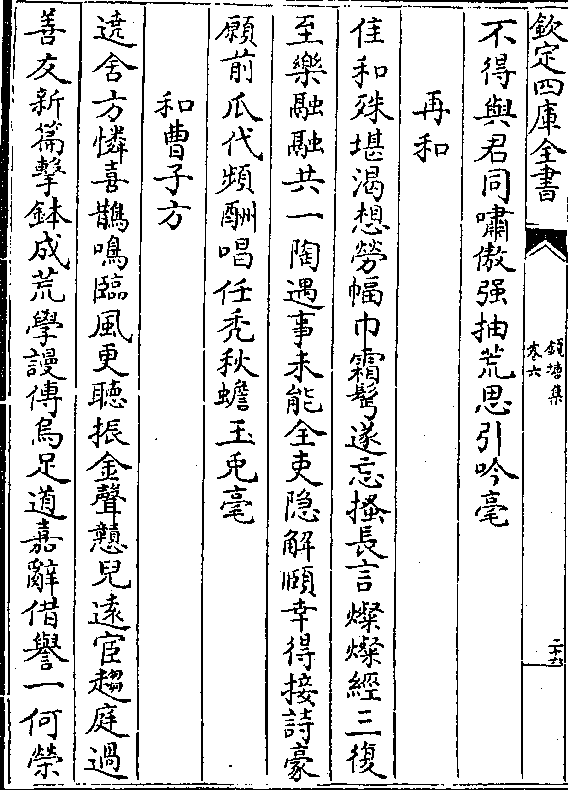 欽定四庫全書
錢塘集
卷六
二十九
不得與君同嘯傲强抽荒思引吟毫
再和
佳和殊堪渴想勞幅巾霜髩遂忘搔長言燦燦經三復
至樂融融共一陶遇事未能全吏隐解頤幸得接詩豪
願前瓜代頻酬唱任秃秋蟾玉兎毫
和曹子方
遶舍方憐喜鵲鳴臨風更聽振金聲戇兒逺宦趨庭過
善友新篇擊鉢成荒學謾傳烏足道嘉辭借譽一何榮